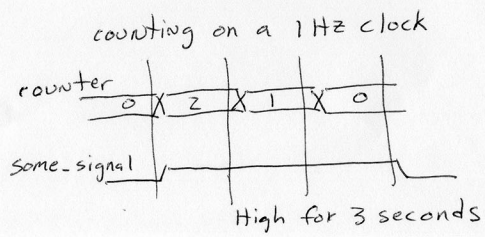 counting on a 1 Hz clock
counter
0 2 1 0
some_signal
High for 3 seconds